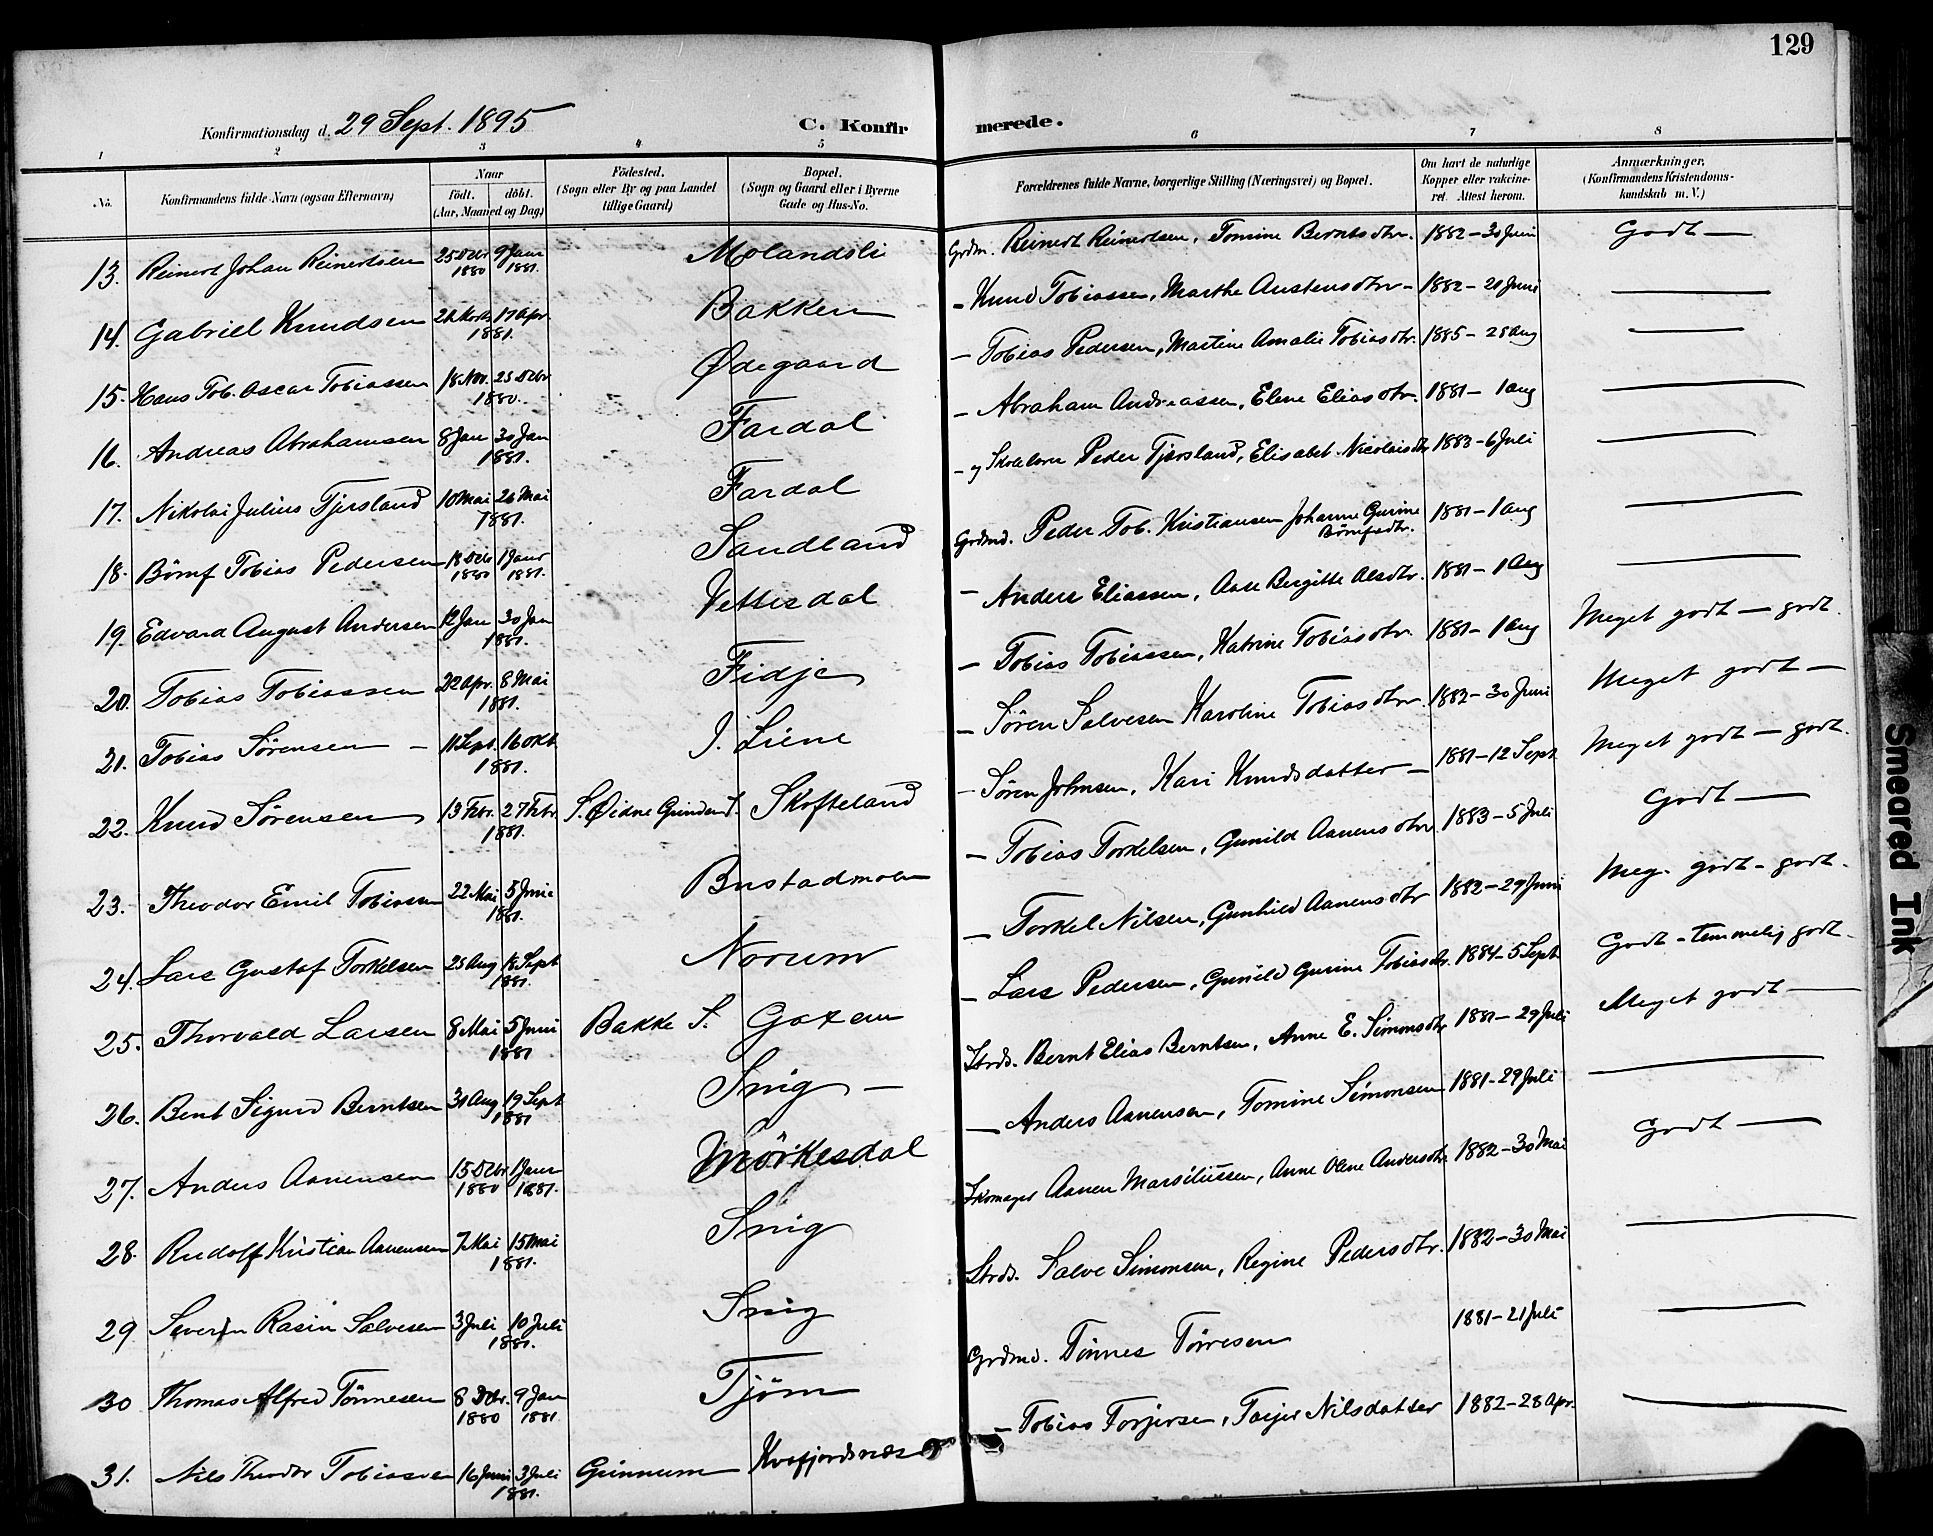 129
Konfirmationsdag d. 29 Sept. 1895 C. Konfir merede.
1 2 3 4 5 6 7 8
No. Konfirmandens fulde Navn (ogsaa Efternavn) Naar født. døbt. (Aar, Maaned og Dag) Fødested. (Sogn eller By og paa Landet tillige Gaard) Bopæl. (Sogn og Gaard eller i Byerne Gade og Hus-No. Forældrenes fulde Navne, borgerlige Stilling (Næringsvei) og Bopæl. Om havt de naturlige Kopper eller vakcineret. Attest herom. Anmærkninger. (Konfirmandens Kristendomskundskab m. V.)
13. Reinert Johan Reinertsen 25 Debr 1880 9 Janr 1881. Molandsli Grdm. Reinert Reinertsen, Tomine Berntsdtr. 1882 - 30 Juni Godt —
14. Gabriel Knudsen 17 Apr 1881. Bakken - Knud Tobiassen, Marthe Austensdtr - 1882 - 20 Juni —
15. Hans Tob. Oscar Tobiassen 18 Nov. 25 Debr 1880. Ødegaard - Tobias Pedersen, Martine Amalie Tobiasdtr. 1885 - 28 Aug —
16. Andreas Abrahamsen 8 Jan 30 Jan 1881. Fardal - Abraham Andreassen, Elene Eliasdtr. 1881 - 1 Aug —
17. Nikolai Julius Tjersland 10 Mai 26 Mai 1881. Fardal - og Skolelærer Peder Tjersland, Elisabet Nicolaisdtr 1883 - 6 Juli —
18. Börnf Tobias Pedersen 18 Debr 1880 1 Janr 1881. Sandland Grdmd. Peder Tob. Kristiansen Johanne Gurine Börnfsdtr. 1881 - 1 Aug —
19. Edvard August Andersen 12 Jan 30 Jan 1881. Vettesdal - Anders Eliassen, Aase Bergitte Olsdtr. 1881 - 1 Aug —
20. Tobias Tobiassen 22 Apr. 8 Mai 1881. Fidje - Tobias Tobiassen, Katrine Tobiasdtr. 1881 - 1 Aug Meget godt — godt.
21. Tobias Sørensen — 11 Sept. 16 Okt 1881. I. Liene - Søren Salvesen Karoline Tobiasdtr. 1882 - 30 Juni Meget godt —
22. Knud Sørensen 13 Febr. 27 Febr. 1881. S. Øidne Skofteland - Søren Johnsen, Kari Knudsdatter — 1881 - 12 Sept Meget godt — godt.
23. Theodor Emil Tobiassen 22 Mai 5 Juni 1881. Bustadmoen - Tobias Torkelsen, Gunild Aanensdtr 1883 - 5 Juli Godt —
24. Lars Gustaf Torkelsen 25 Aug 18 Sept 1881. Norum - Torkel Nilsen, Gunhild Aanensdtr 1882 - 29 Juni Meg. godt - godt.
25. Thorvald Larsen 8 Mai 5 Juni 1881 Bakke S. - Lars Pedersen, Gunild Gurine Tobiasdtr. 1884 - 5 Sept Godt - temmelig godt.
26. Bent Sigurd Berntsen 31 Aug 19 Sept 1881 Snig — Strds. Bernt Elias Berntsen, Anne E. Simonsdtr 1881 - 29 Juli Meget godt —
27. Anders Aanensen 15 Debr 1880 1 Janr 1881. Mörkesdal — Anders Aanensen, Tomine Simonsen 1881 - 29 Juli —
28. Rudolf Kristian Aanensen 7 Mai 15 Mai 1881. Snig Skomager Aanen Marsiliussen, Anne Olene Andersdtr. 1882 - 30 Mai Godt —
29 Severin Rasin Salvesen 3 Juli 10 Juli 1881. Snig Strds. Salve Simonsen, Regine Pedersdtr. 1882 - 30 Mai —
30 Thomas Alfred Tönnesen 8 Debr. 1880 9 Jan 1881 Tjöm Grdmd. Tönnes Törresen 1881 - 21 Juli —
31. Nils Theodor Tobiassen 16 Juni 3 Juli 1881. Grinnum Kvafjordsnæs - Tobias Torjersen, Tarjer Nilsdatter 1882 - 28 Apr. —
Smeared Ink